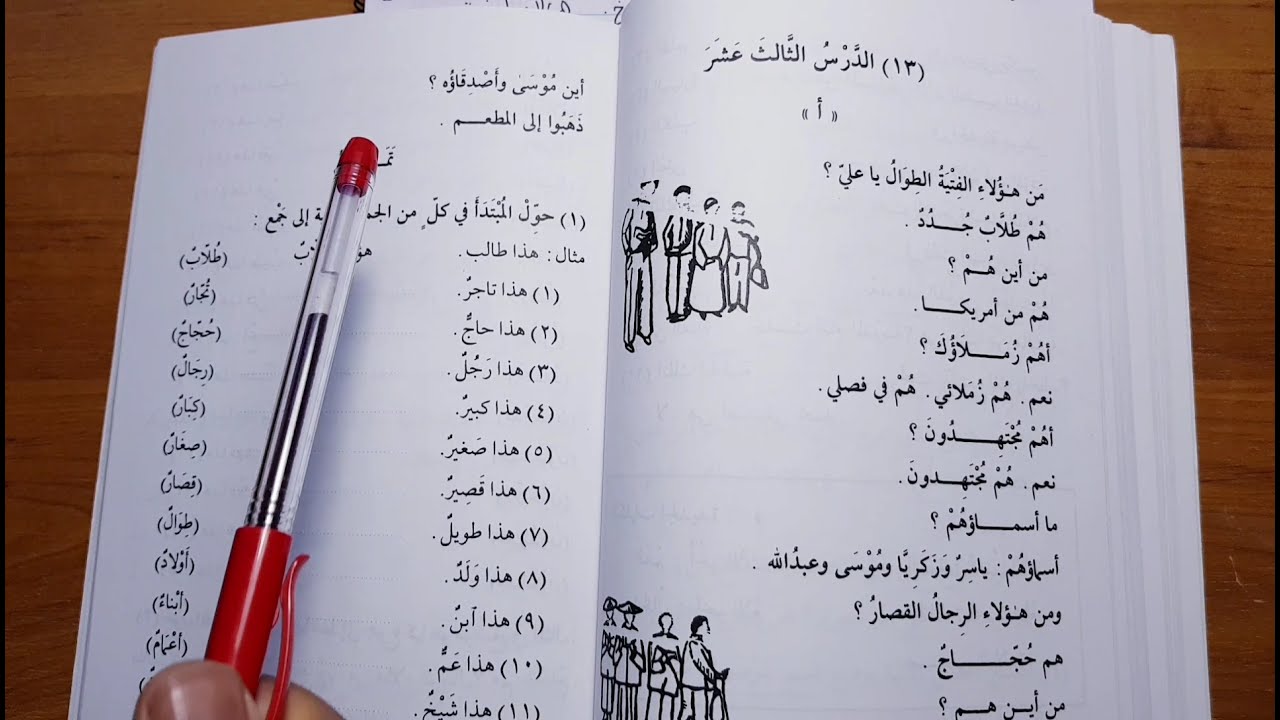 (١٣) الدَّرْسُ الثَّالثَ عَشَرَ
« أ »
مَن هـٰؤُلاءِ الفِتْيَةُ الطِوَالُ يا عليّ ؟
هُمْ طُلَّابٌ جُــدُدٌ .
من أين هُـمْ ؟
هُمْ من أمريكـــا.
أهُمْ زُمَـــلَاؤُكَ ؟
نعم. هُمْ زُمَلائي. هُمْ في فصلي.
أهُمْ مُجْتَهِـــدُونَ ؟
نعم. هُمْ مُجْتَهِــدونَ.
ما أسمــاؤهُمْ ؟
أسماؤهُمْ: ياسِرٌ وَزَكَرِيَّا ومُوْسَى وعبدُالله .
ومن هـٰؤلاءِ الرِجالُ القصارُ ؟
هم حُجَّــــاجٌ .
من أيـن هـم ؟
أين مُوْسَىٰ وأَصْدِقَاؤُه ؟
ذَهَبُوا إلى المطعـــم .
(١) حوِّلْ المُبْتَدَأَ في كلّ من إلى جَمْع :
مثال: هذا طالب. (طُلّابٌ)
(١) هذا تاجرٌ. (تُجّارٌ)
(٢) هذا حاجٌّ. (حُجّاجٌ)
(٣) هذا رَجُلٌ. (رِجَالٌ)
(٤) هذا كبيرٌ. (كِبَارٌ)
(٥) هذا صَغيرٌ. (صِغَارٌ)
(٦) هذا قَصِيرٌ. (قِصَارٌ)
(٧) هذا طويلٌ. (طِوَالٌ)
(٨) هذا وَلَدٌ. (أَوْلادٌ)
(٩) هذا ٱبنٌ. (أبْناءٌ)
(١٠) هذا عَمٌّ. (أعْمَامٌ)
(١١) هذا شَيْخٌ.